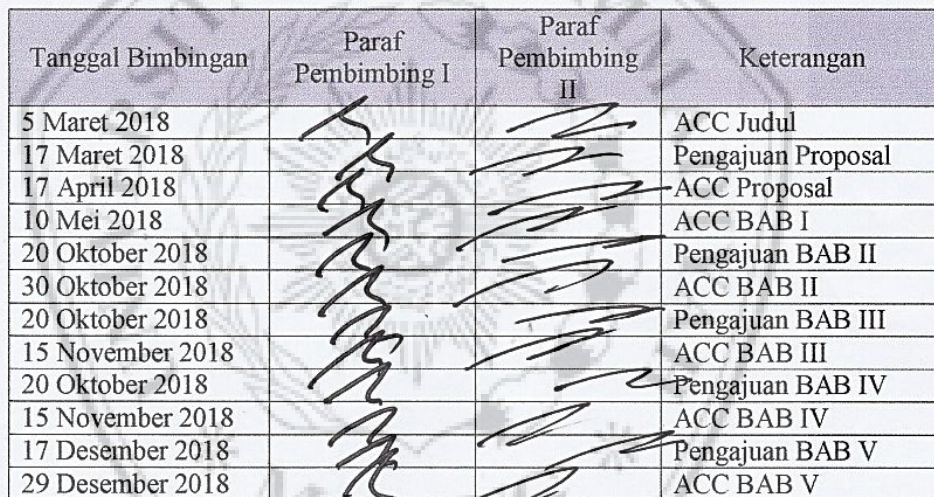 Tanggal Bimbingan Paraf Pembimbing I Paraf Pembimbing II Keterangan
5 Maret 2018 ACC Judul
17 Maret 2018 Pengajuan Proposal
17 April 2018 ACC Proposal
10 Mei 2018 ACC BAB I
20 Oktober 2018 Pengajuan BAB II
30 Oktober 2018 ACC BAB II
20 Oktober 2018 Pengajuan BAB III
15 November 2018 ACC BAB III
20 Oktober 2018 Pengajuan BAB IV
15 November 2018 ACC BAB IV
17 Desember 2018 Pengajuan BAB V
29 Desember 2018 ACC BAB V